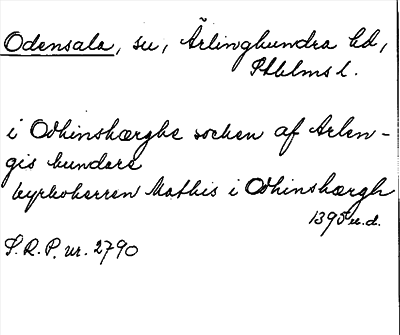 Odensala, sn, Ärlinghundra hd,
Sthlms l.
i Odhinshærghe socken af Ærlen-
gis hundare
kyrkoherren Mathis i Odhinshærgh
1390 u.d.
S.R.P. nr. 2790